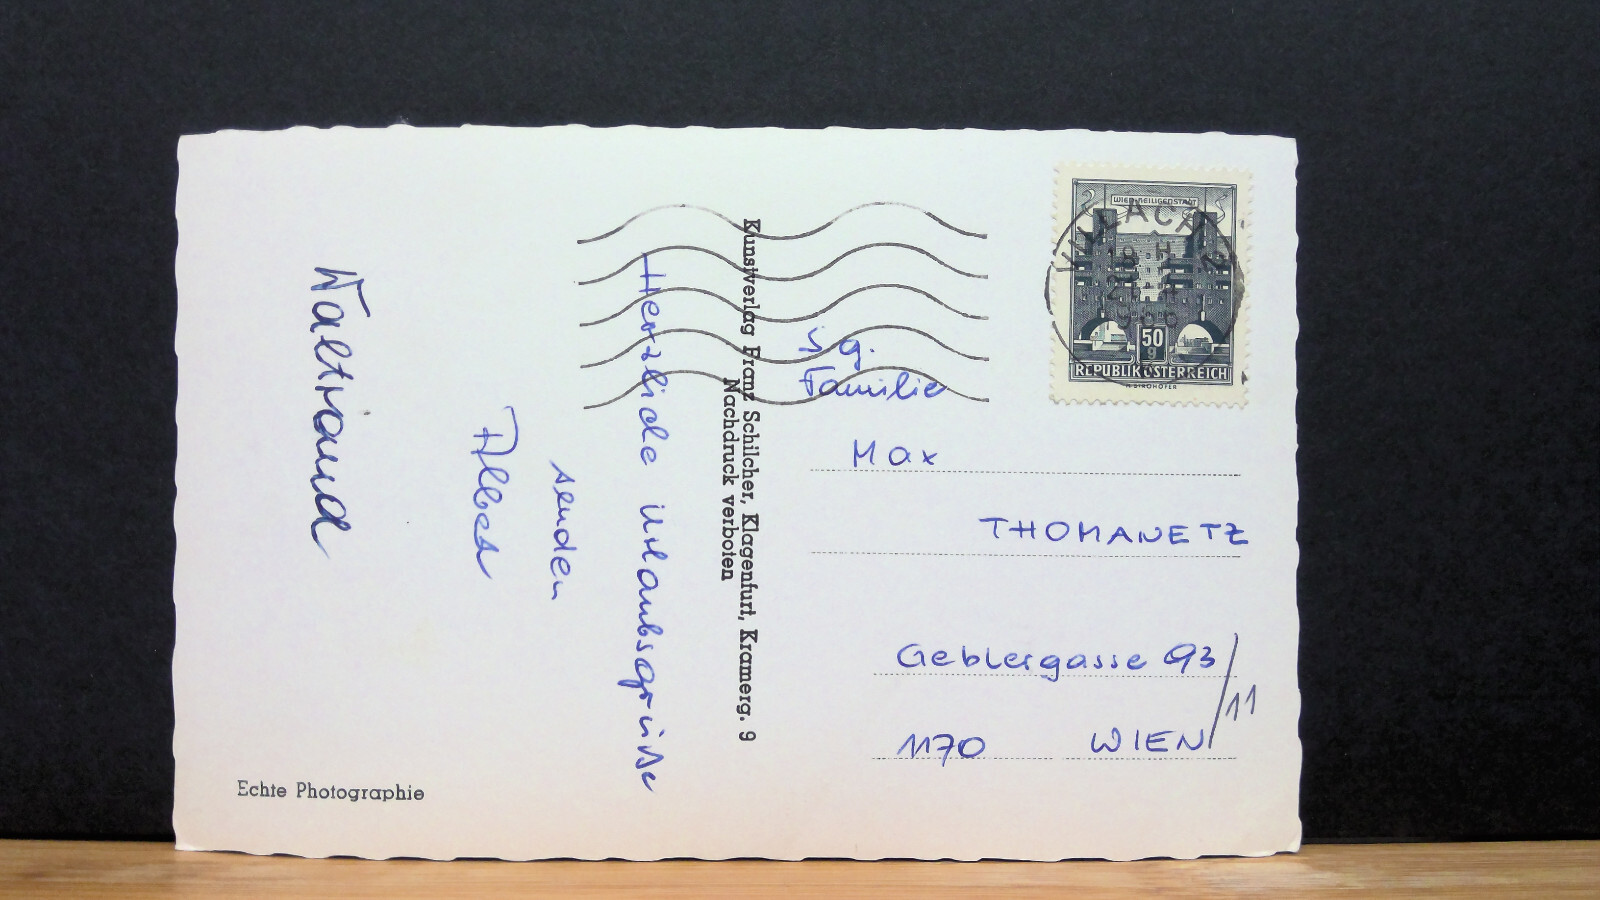 Herzliche Urlaubsgrüße
senden
Waltraud
Kunstverlag Franz Schilcher, Klagenfurt, Kramerg. 9
Nachdruck verboten
Echte Photographie
WIEN-HEILIGENSTADT
50
g
REPUBLIK ÖSTERREICH
VILLACH 2
Familie
Max
THOMANETZ
Geblergasse 93/11
1170 WIEN